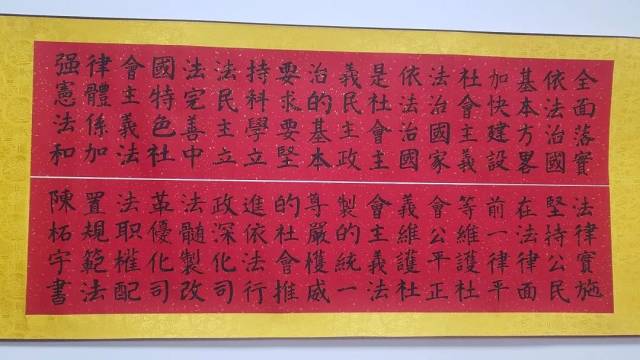 全面落實
依法治國
基本方畧
加快建設
社會主義
法治國家
依法治國
是社會主
義民主政
治的基本
要求要堅
持科學立
法民主立
法完善中
國特色社
會主義法
律體係加
强憲法和
法律實施
堅持公民
在法律面
前一律平
等維護社
會公平正
義維護社
會主義法
製的統一
尊嚴權威
的社會推
進依法行
政深化司
法髓製改
革優化司
法职權配
置規範法
陳柘宇書